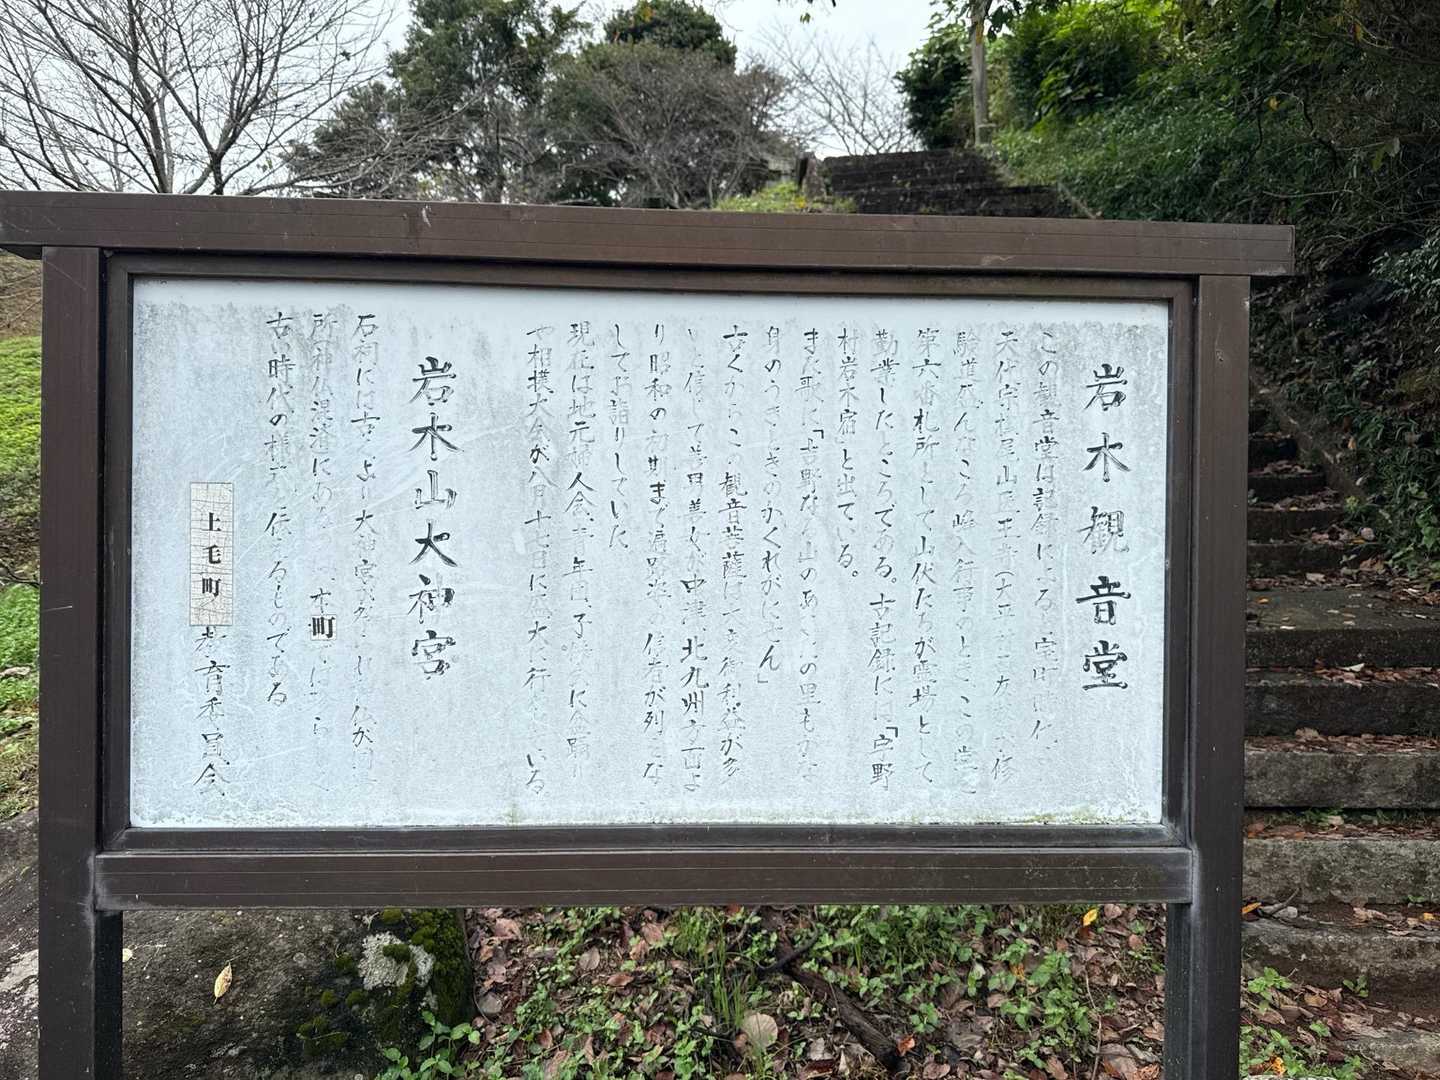 岩木観音堂
この観音堂は記録による 室町時代
天台宗 山医王寺(大平 修
験道 さんなころ峰入行事のとき この堂を
第六番札所として山伏たちが霊場として
勤業したところである。古記録には「宇野
村岩木宿」と出ている。
また歌に「吉野なる山のあなたの里もがな
身のうきときのかくれがにせん」
古くからこの観音菩薩は 御利益が多
いと信じて善男善女が中津、北九州方面よ
り昭和の初期まで 信者が列 な
してお詣りしていた
現在は地元婦人会、青年団、子供会 に 踊り
や相撲大会が八月十七日に 大 行 いる
岩木山大神宮
石祠には古くより大神宮が 仏が
所 神仏混淆にある 、本町では珍ら
古い時代の様 を伝えるものである
上毛町教育委員会